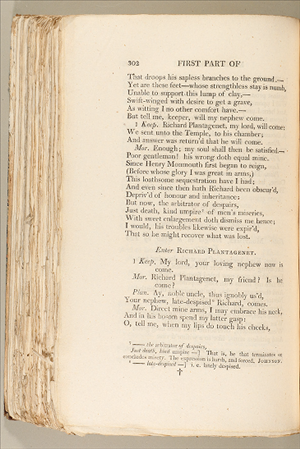 302 FIRST PART OF
That droops his sapless branches to the ground.—
Yet are these feet—whose strengthless stay is numb,
Unable to support this lump of clay,—
Swift-winged with desire to get a grave,
As witting I no other comfort have.—
But tell me, keeper, will my nephew come.
1 Keep. Richard Plantagenet, my lord, will come:
We sent unto the Temple, to his chamber;
And answer was return'd that he will come.
Mor. Enough; my soul shall then be satisfied.—
Poor gentleman! his wrong doth equal mine.
Since Henry Monmouth first began to reign,
(Before whose glory I was great in arms,)
This loathsome sequestration have I had;
And even since then hath Richard been obscur'd,
Depriv'd of honour and inheritance:
But now, the arbitrator of despairs,
Just death, kind umpire¹ of men's miseries,
With sweet enlargement doth dismiss me hence;
I would, his troubles likewise were expir'd,
That so he might recover what was lost.
Enter RICHARD PLANTAGENET.
1 Keep. My lord, your loving nephew now is
come.
Mor. Richard Plantagenet, my friend? Is he
come?
Plan. Ay, noble uncle, thus ignobly us'd,
Your nephew, late-despised² Richard, comes.
Mor. Direct mine arms, I may embrace his neck,
And in his bosom spend my latter gasp:
O, tell me, when my lips do touch his cheeks,
¹ —— the arbitrator of despairs,
Just death, kind umpire —] That is, he that terminates or
concludes misery. The expression is harsh, and forced. JOHNSON.
² —— late-despised —] i. e. lately despised.